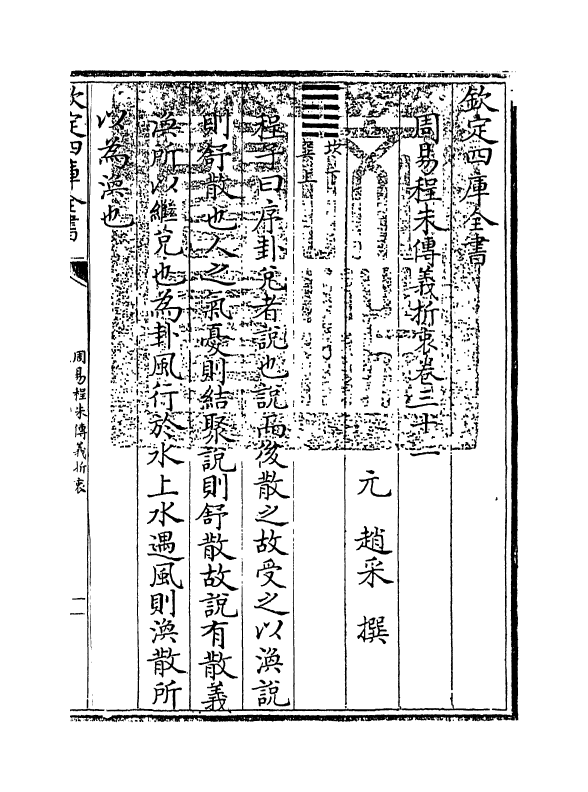 欽定四庫全書
周易程朱傳義折衷卷三十一
元 趙采 撰
䷺坎下巽上
程子曰序卦兊者說也說而後散之故受之以渙說
則舒散也人之氣憂則結聚說則舒散故說有散義
渙所以繼兊也為卦風行於水上水遇風則渙散所
以為渙也
欽定四庫全書
周易程朱傳義折衷